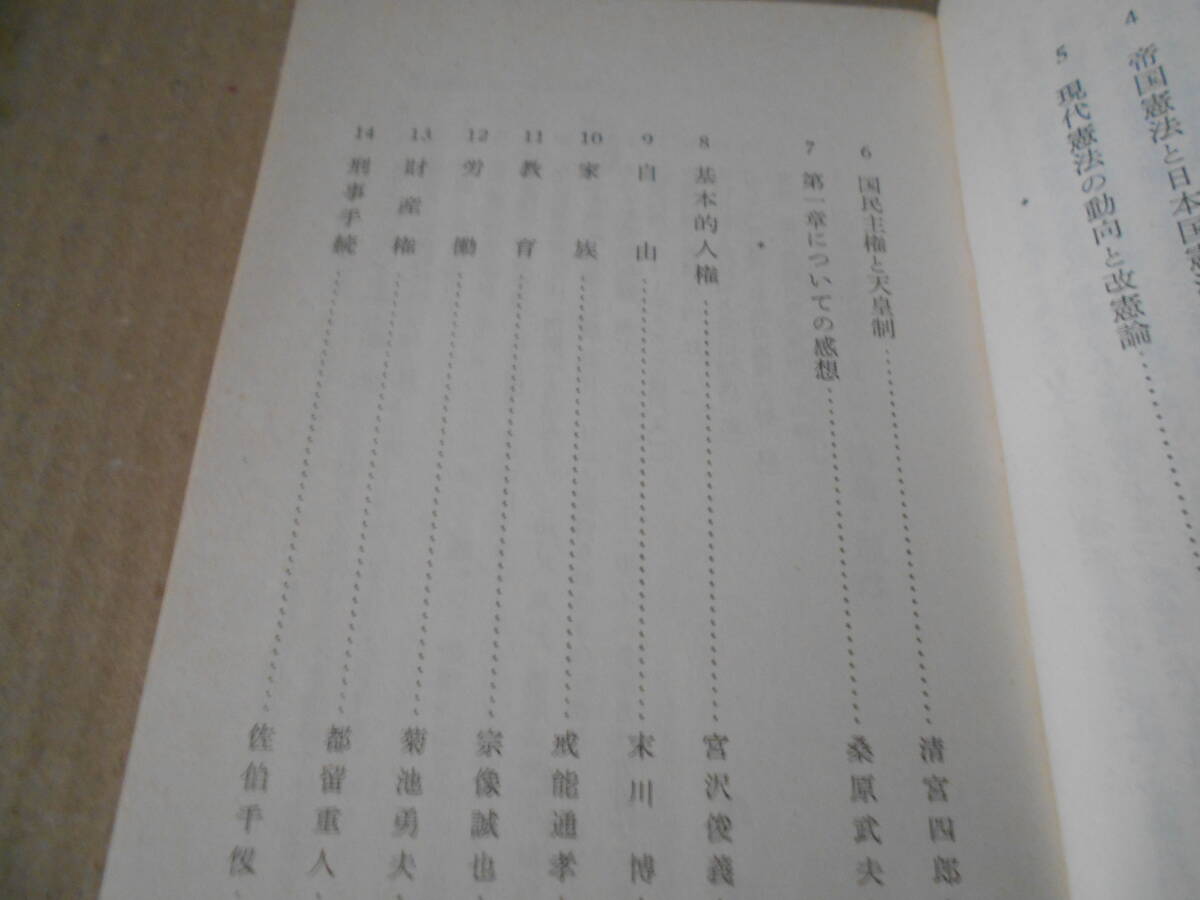 4 帝国憲法と日本国憲
5 現代憲法の動向と改憲論
6 国民主権と天皇制 清宮四郎
7 第一章についての感想 桑原武夫
8 基本的人権 宮沢俊義
9 自由 末川博
10 家族 戒能通孝
11 教育 宗像誠也
12 労働 菊池勇夫
13 財産権 都留重人
14 刑事手続 佐伯千仭